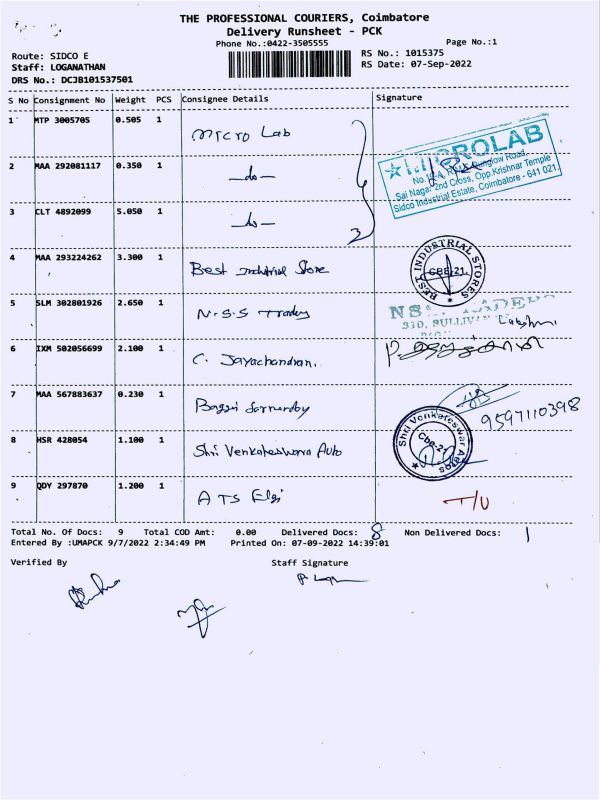 THE PROFESSIONAL COURIERS, Coimbatore
Delivery Runsheet - PCK
Phone No.:0422-3505555
Page No.:1
Route: SIDCO E
RS No.: 1015375
Staff: LOGANATHAN
RS Date: 07-Sep-2022
DRS No.: DCJB101537501
S No Consignment No Weight PCS Consignee Details Signature
1 MTP 3005705 0.505 1 Micro Lab
MICROLAB
Sai Nagar 2nd Cross, Opp.Krishnar Temple
Sidco Industrial Estate, Coimbatore - 641 021
2 MAA 292081117 0.350 1 —do—
3 CLT 4892099 5.050 1 —do—
3
4 MAA 293224262 3.300 1 Best Industrial Store
BEST INDUSTRIAL STORES
CBE-21
5 SLM 302801926 2.650 1 N.S.S Traders
310, SULLIVAN
Lakshmi
6 IXM 502056699 2.100 1 C. Jayachandran.
7 MAA 567883637 0.230 1
9597110398
8 HSR 428054 1.100 1 Shri Venkateswara Auto
Shri Venkateswara Autos
Cbe-21
9 QDY 297870 1.200 1 ATS Elgi
T/U
Total No. Of Docs: 9 Total COD Amt: 0.00 Delivered Docs: 8 Non Delivered Docs: 1
Entered By :UMAPCK 9/7/2022 2:34:49 PM Printed On: 07-09-2022 14:39:01
Verified By Staff Signature